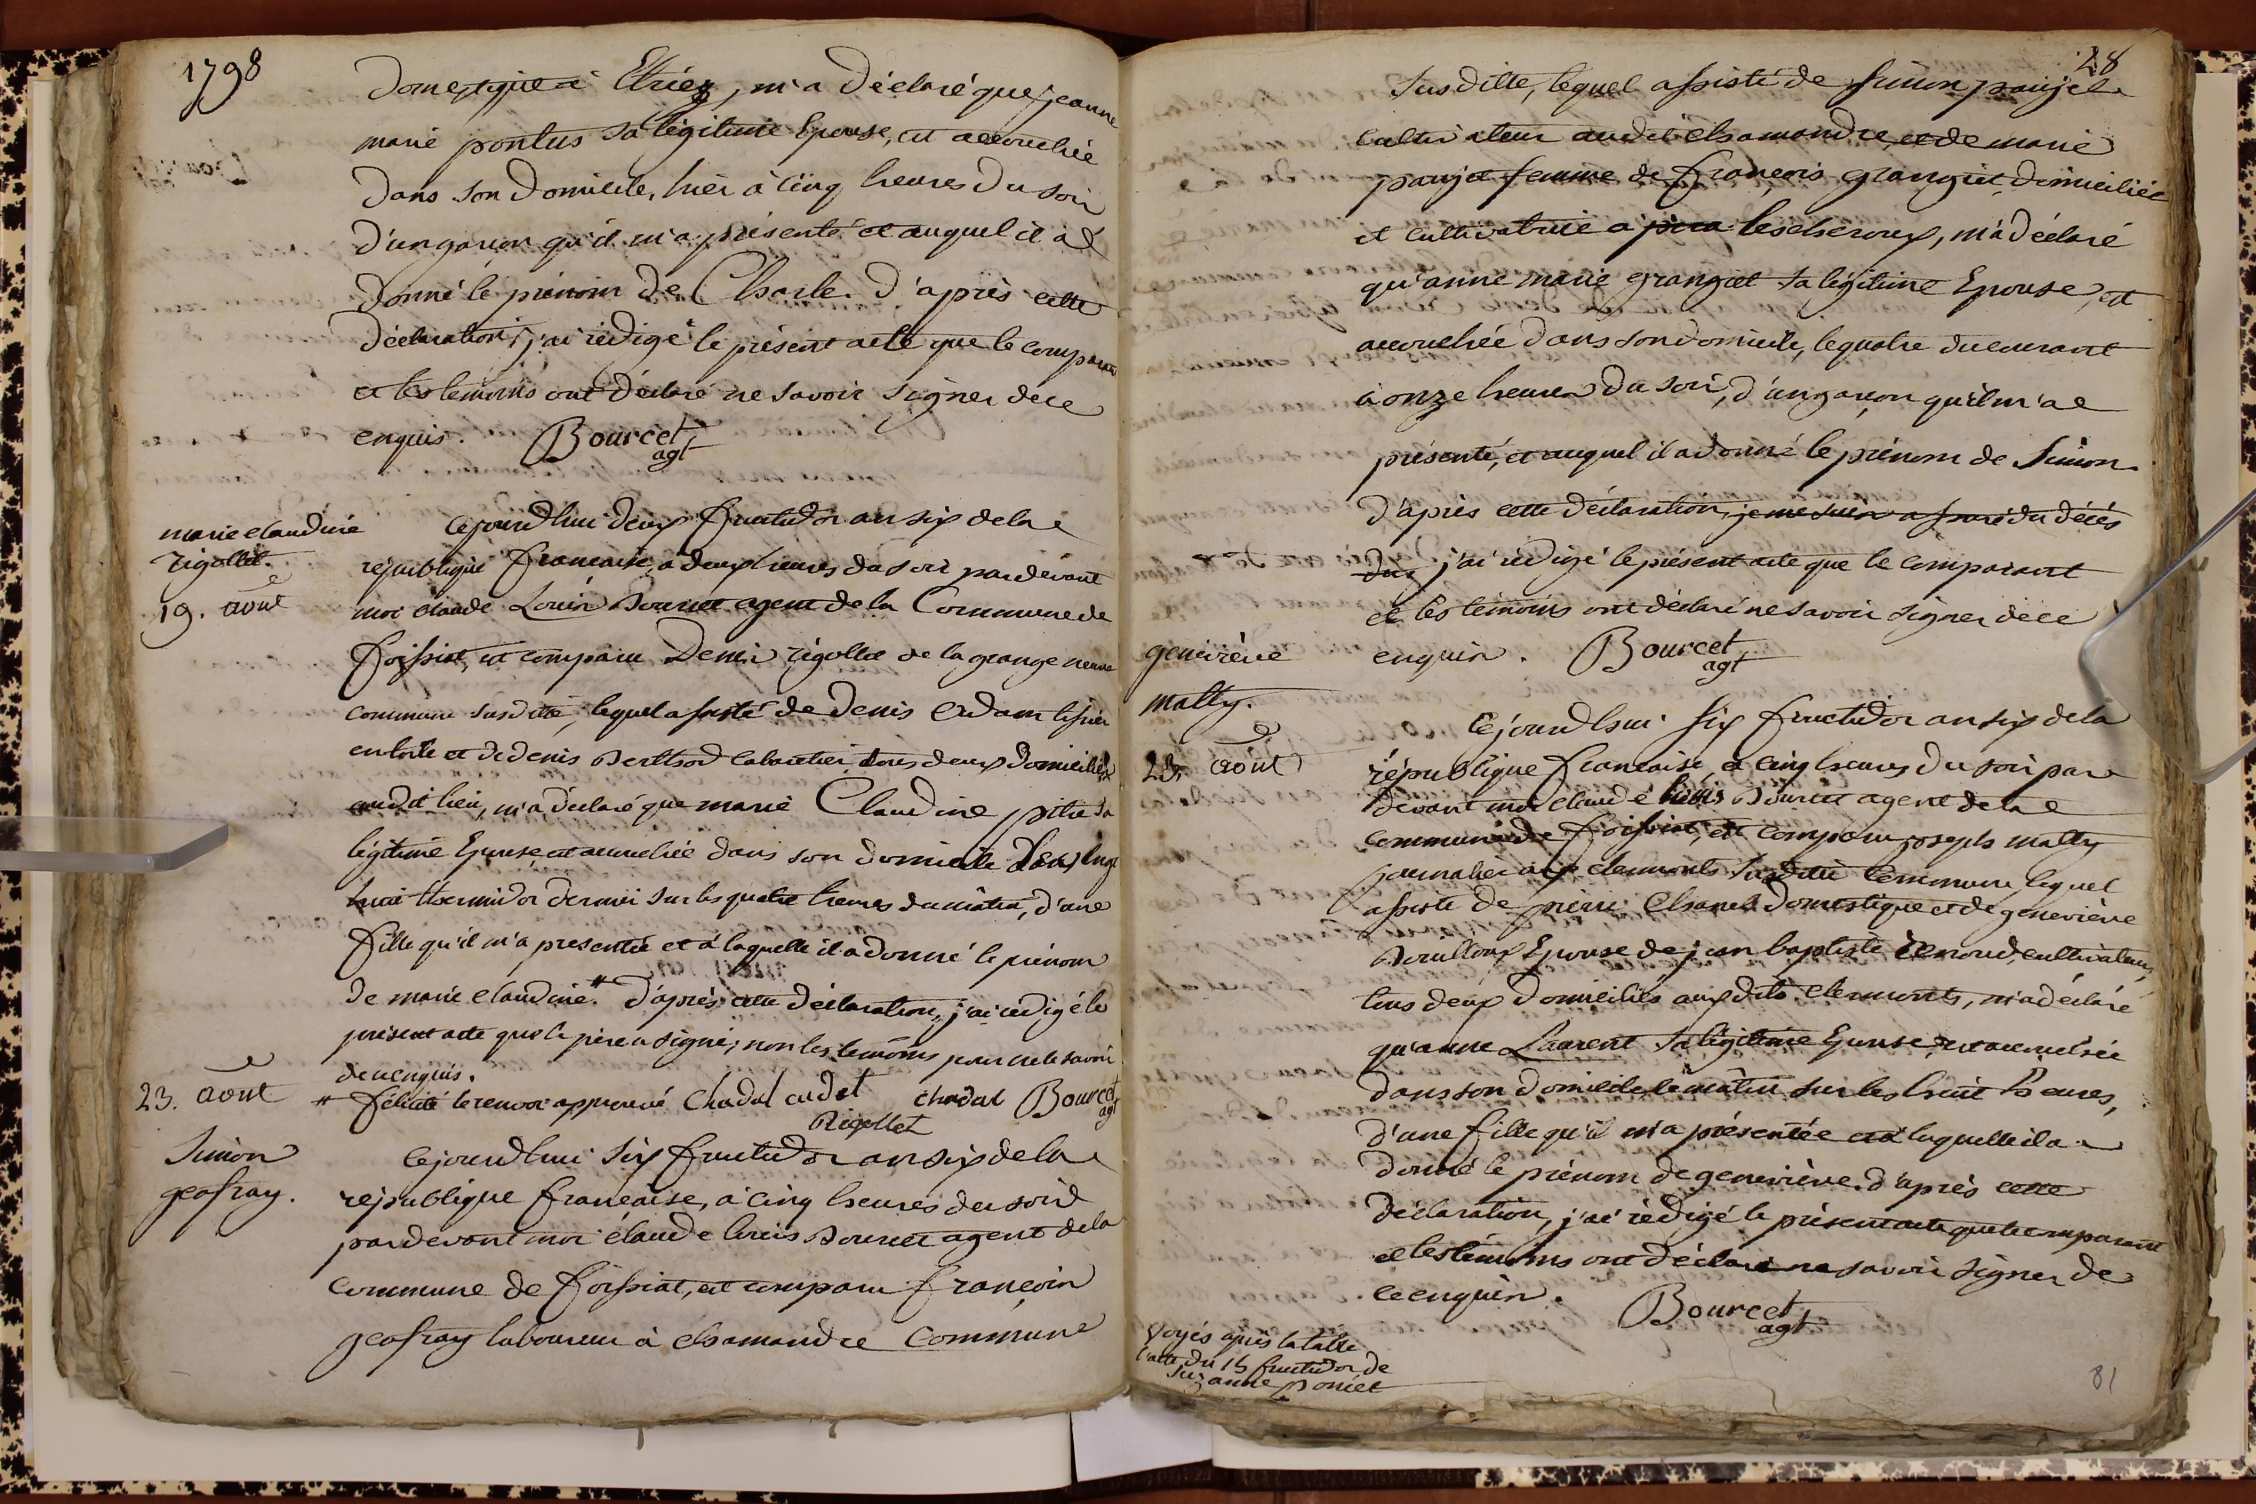 1798
domestique à Etriez, m'a déclaré que jeanne
marie pontus sa légitime Epouse, est accouchée
dans son domicile, hier à cinq heures du soir
d'un garçon qu'il m'a présenté et auquel il a
donné le prénom de Charle. D'après cette
déclaration, j'ai rédigé le présent acte que le comparant
et les temoins ont déclaré ne savoir signer de ce
enquis. Bourcet
agt
marie claudine
rigollet.
19. août
Cejourd'hui deux fructidor an six de la
république francaise, à deux heures du soir pardevant
moi claude Louis Bourcet agent de la Commune de
foissiat, est comparu Denis rigollet de la grange neuve
commune susdite, lequel assisté de denis Adam tissier
en toile et de denis Berthod cabaretier tous deux domiciliés
audit lieu, m'a déclaré que marie Claudine pitre sa
légitime Epouse est accouchée dans son domicile le vingt
huit thermidor dernier sur les quatre heures du matin, d'une
fille qu'il m'a presentée et à laquelle il a donné le prénom
de marie claudine.* D'après cette déclaration, j'ai rédigé le
présent acte que le père a signé, non les temoins pour ne le savoir
de ce enquis.
* félicité le renvoi approuvé Chadal cadet chadal Bourcet
agt
Rigollet
23. août
Simon
geofray.
Cejourd'hui six fructidor an six de la
république francaise, à cinq heures du soir
pardevant moi claude louis Bourcet agent de la
commune de foissiat, est comparu françois
geofray laboureur à chamandre commune
28
susditte, lequel assisté de simon paujet
cultivateur audit chamandre, et de marie
paujet femme de françois grangiet, domiciliée
et cultivatrice a les cheroux, m'a déclaré
qu'anne marie grangiet sa légitime Epouse, est
accouchée dans son domicile, le quatre du courant
à onze heures du soir, d'un garçon qu'il m'a
présenté, et auquel il a donné le prénom de Simon.
D'après cette déclaration, je me suis assuré du décès
du j'ai rédigé le présent acte que le comparant
et les temoins ont déclaré ne savoir signer de ce
enquis. Bourcet
agt
geneviève
matty.
23. août
Cejourd'hui six fructidor an six de la
république francaise à cinq heures du soir par
devant moi claude louis Bourcet agent de la
commune de foissiat, est comparu joseph matty
journalier aux clermonts susditte commune lequel
assisté de pierre Chanel domestique et de geneviève
Bouilloux Epouse de jean baptiste cultivateurs,
tous deux domiciliés auxdits clermonts, m'a déclaré
qu'anne Laurent sa légitime Epouse est accouchée
dans son domicile le matin sur les huit heures,
d'une fille qu'il m'a présentée et à laquelle il a
donné le prénom de geneviève. d'après cette
déclaration, j'ai rédigé le présent acte que le comparant
et les témoins ont déclaré ne savoir signer de
ce enquis.
Bourcet
agt
Voyés après la table
l'acte du 15 fructidor de
suzanne poncet
81